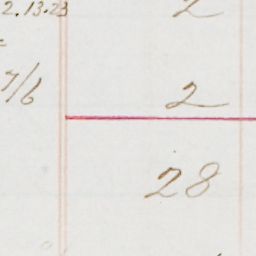 2.13.23 2
7/6 2
28